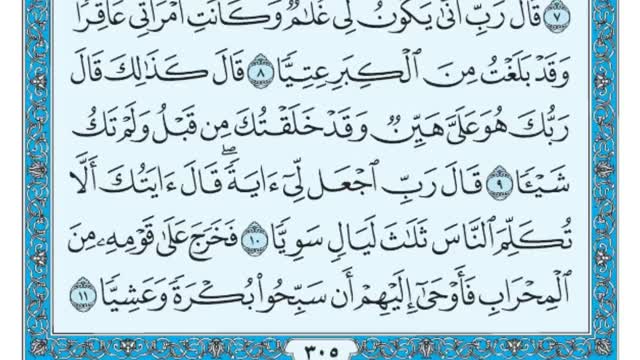 ٧ قَالَ رَبِّ أَنَّىٰ يَكُونُ لِى غُلَٰمٌ وَكَانَتِ ٱمْرَأَتِى عَاقِرًا
وَقَدْ بَلَغْتُ مِنَ ٱلْكِبَرِ عِتِيًّا ٨ قَالَ كَذَٰلِكَ قَالَ
رَبُّكَ هُوَ عَلَىَّ هَيِّنٌ وَقَدْ خَلَقْتُكَ مِن قَبْلُ وَلَمْ تَكُ
شَيْـًٔا ٩ قَالَ رَبِّ ٱجْعَل لِّىٓ ءَايَةً ۖ قَالَ ءَايَتُكَ أَلَّا
تُكَلِّمَ ٱلنَّاسَ ثَلَٰثَ لَيَالٍ سَوِيًّا ١٠ فَخَرَجَ عَلَىٰ قَوْمِهِۦ مِنَ
ٱلْمِحْرَابِ فَأَوْحَىٰٓ إِلَيْهِمْ أَن سَبِّحُوا۟ بُكْرَةً وَعَشِيًّا ١١
٣٠٥